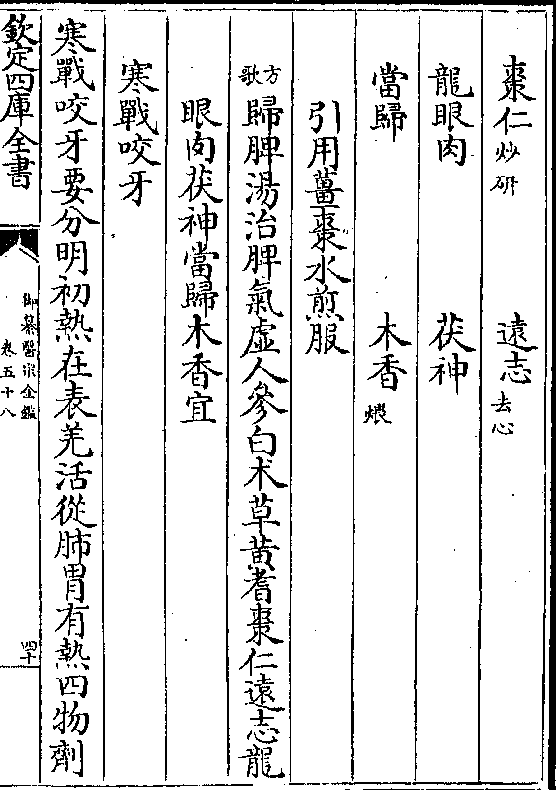 棗仁炒研　遠志去心
龍眼肉　茯神
當歸　木香煨
引用薑棗水煎服
方歌歸脾湯治脾氣虛人參白术草黃耆棗仁遠志龍
眼肉茯神當歸木香宜
寒戰咬牙
寒戰咬牙要分明初熱在表羌活從肺胃有熱四物劑
欽定四庫全書
御纂醫宗金鑑
卷五十八
四十